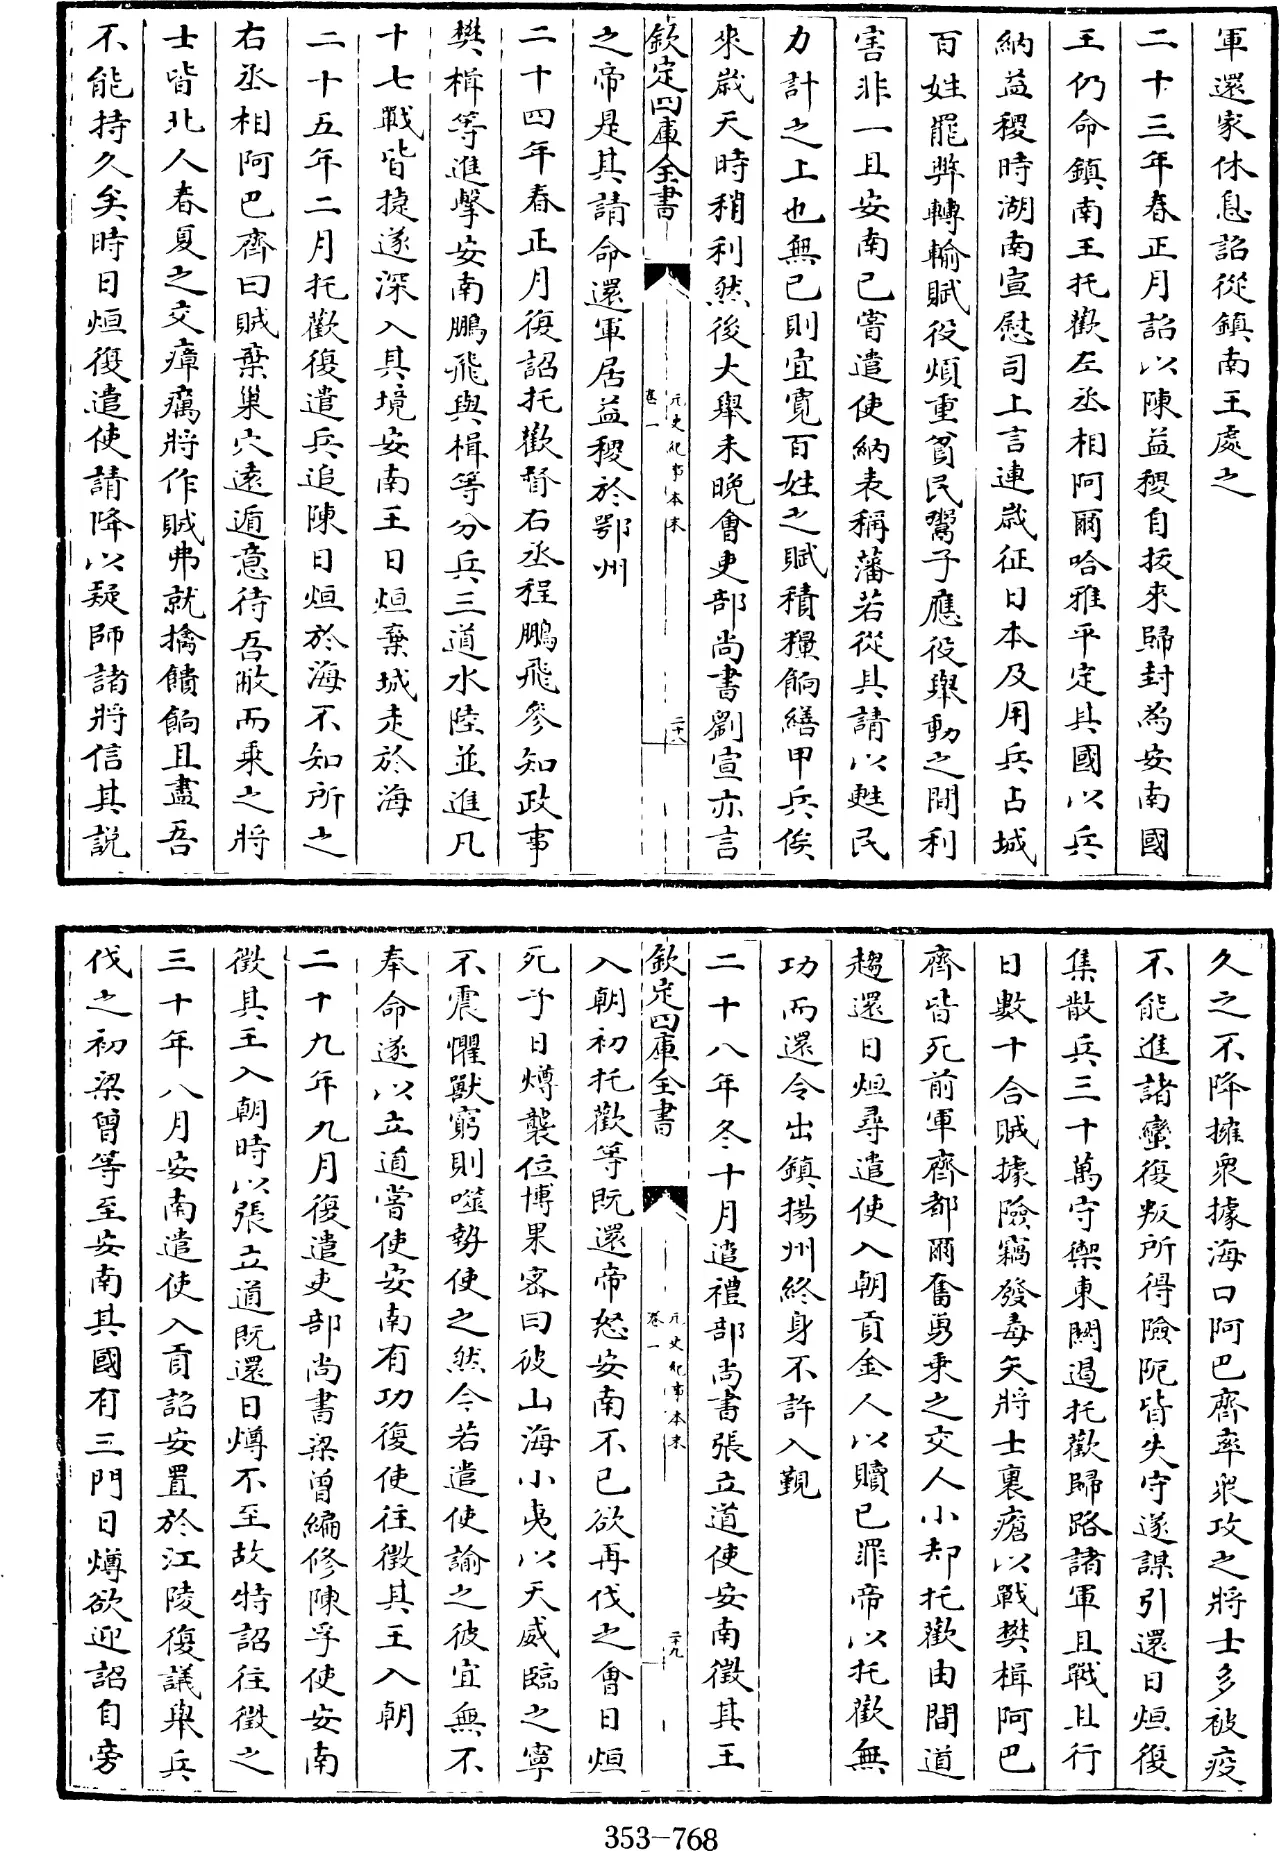 軍還家休息詔從鎮南王處之
二十三年春正月詔以陳益稷自拔來歸封為安南國
王仍命鎮南王托歡左丞相阿爾哈雅平定其國以兵
納益稷時湖南宣慰司上言連歲征日本及用兵占城
百姓罷弊轉輸賦役煩重貧民鬻子應役舉動之間利
害非一且安南已嘗遣使納表稱藩若從其請以甦民
力計之上也無已則宜寛百姓之賦積糧餉繕甲兵俟
來歲天時稍利然後大舉未晚會吏部尚書劉宣亦言
欽定四庫全書
元史紀事本末
卷一
二十八
之帝是其請命還軍居益稷於鄂州
二十四年春正月復詔托歡督右丞程鵬飛參知政事
樊楫等進擊安南鵬飛與楫等分兵三道水陸並進凡
十七戰皆捷遂深入其境安南王日烜棄城走於海
二十五年二月托歡復遣兵追陳日烜於海不知所之
右丞相阿巴齊曰賊棄巢穴遠遁意待吾敝而乘之將
士皆北人春夏之交瘴癘將作賊弗就擒饋餉且盡吾
不能持久矣時日烜復遣使請降以疑師諸將信其說
久之不降擁衆據海口阿巴齊率衆攻之將士多被疫
不能進諸蠻復叛所得險阨皆失守遂謀引還日烜復
集散兵三十萬守禦東關遏托歡歸路諸軍且戰且行
日數十合賊據險竊發毒矢將士裹瘡以戰樊楫阿巴
齊皆死前軍齊都爾奮勇乘之交人小却托歡由間道
趨還日烜尋遣使入朝貢金人以贖已罪帝以托歡無
功而還令出鎮揚州終身不許入覲
二十八年冬十月遣禮部尚書張立道使安南徵其王
欽定四庫全書
元史紀事本末
卷一
二十九
入朝初托歡等既還帝怒安南不已欲再伐之會日烜
死子日燇襲位博果密曰彼山海小夷以天威臨之寧
不震懼獸窮則噬勢使之然今若遣使諭之彼宜無不
奉命遂以立道嘗使安南有功復使往徵其王入朝
二十九年九月復遣吏部尚書梁曾編修陳孚使安南
徵其王入朝時以張立道既還日燇不至故特詔往徵之
三十年八月安南遣使入貢詔安置於江陵復議舉兵
伐之初梁曾等至安南其國有三門日燇欲迎詔自旁
353-768